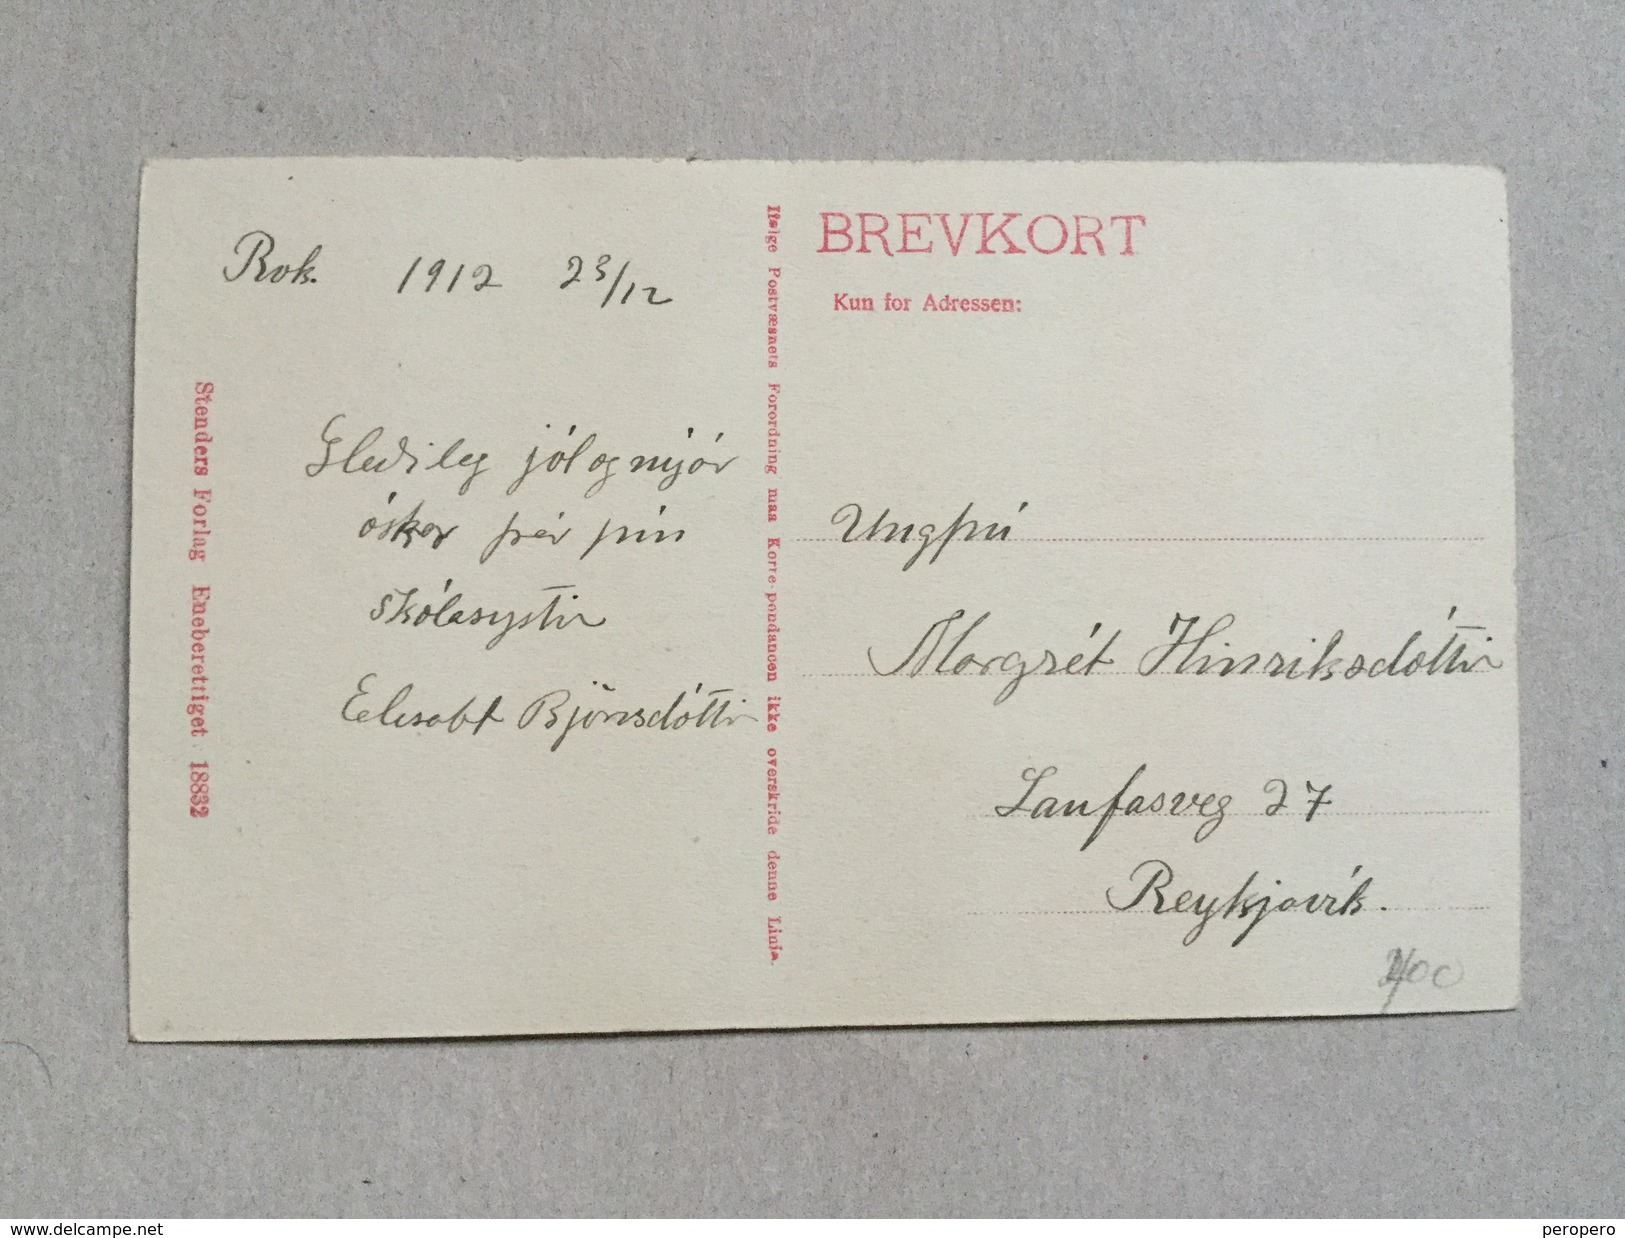 BREVKORT
Kun for Adressen:
Rvk. 1912 23/12
Gleðileg jól og nýjár
óskar þér þín
skólasystir
Elisabt Björnsdóttir
Stenders Forlag Eneberettiget 18832
Ifølge Postvæsnets Forordning maa Korre-pondancen ikke overskride denne Linje.
Ungfrú
Margrét Hinriksdóttir
Laufasveg 27
Reykjavík.
www.delcampe.net
peropero